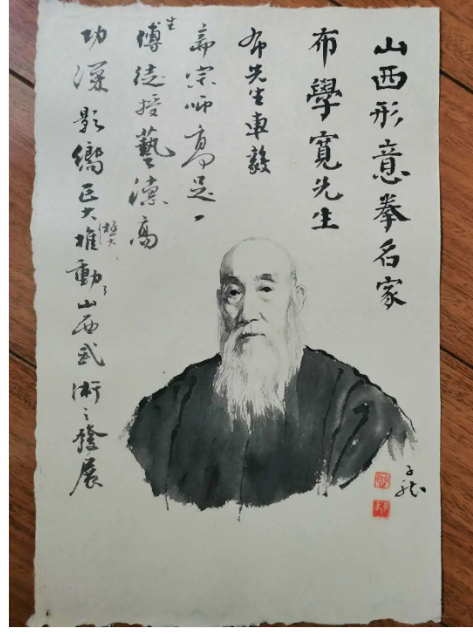 山西形意拳名家
布學寬先生
布先生車毅
齋宗师高足一
生傅徒授藝德高
功深影嚮巨大極大推動了山西武術之發展
子龍